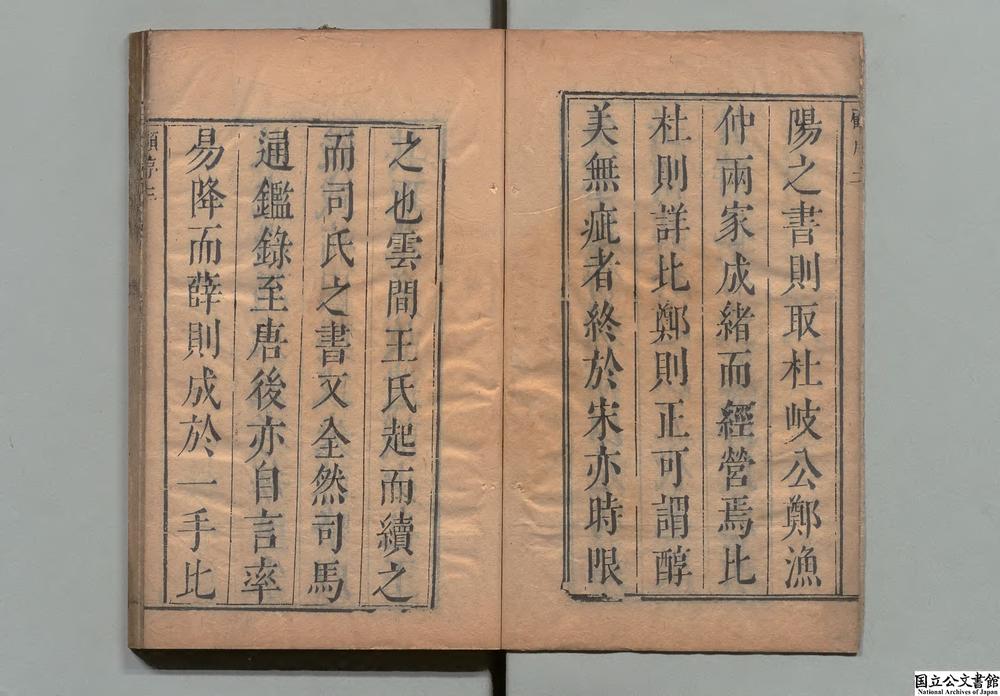 陽之書則取杜岐公鄭漁
仲兩家成緒而經營焉比
杜則詳比鄭則正可謂醇
美無疵者終於宋亦時限
之也雲間王氏起而續之
而司氏之書又全然司馬
通鑑錄至唐後亦自言率
易降而薛則成於一手比
国立公文書館
National Archives of Japan